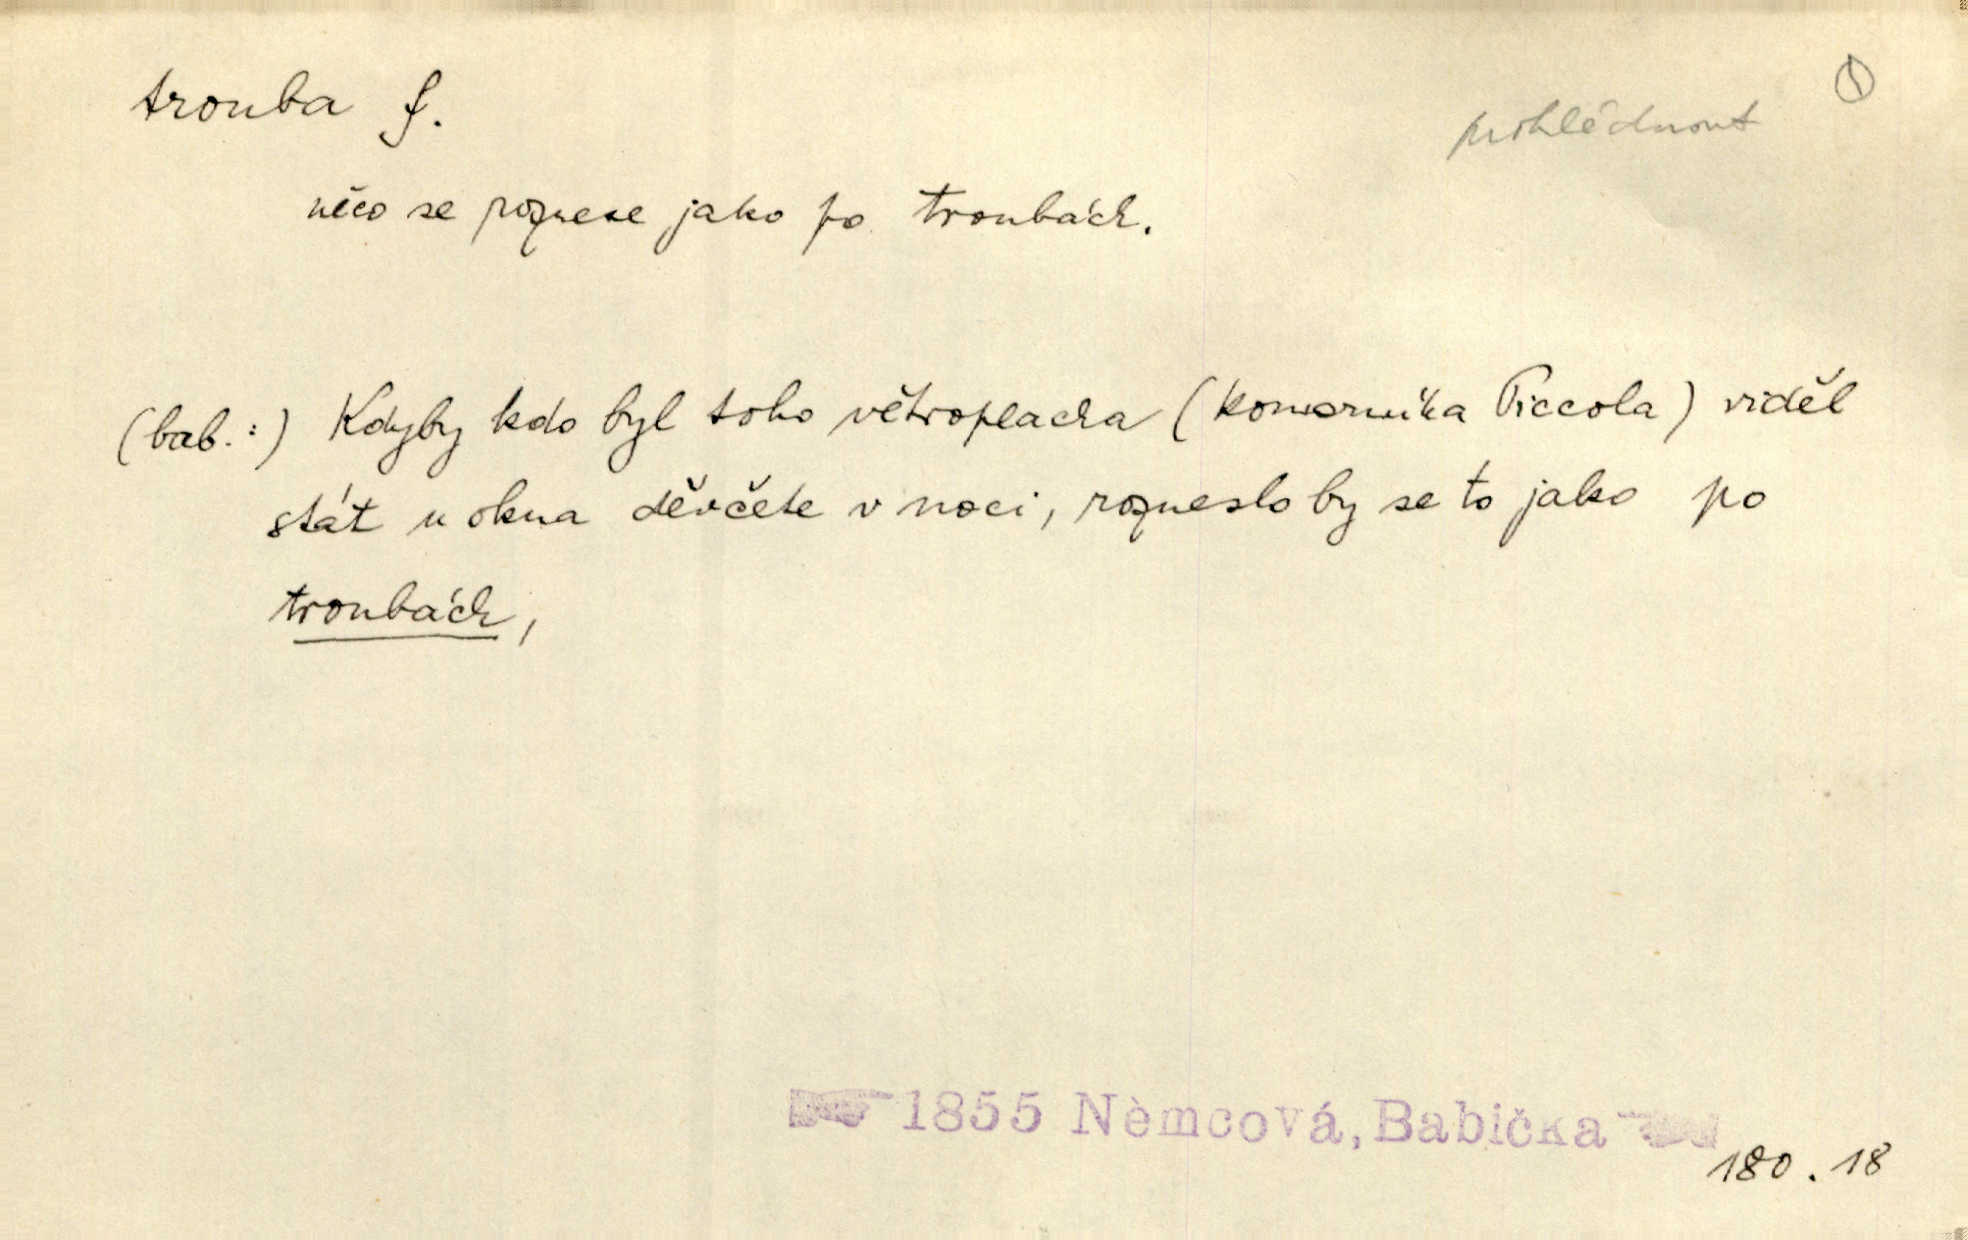 trouba f.
prohlédnout
něco se roznese jako po troubách.
(bab.:) Kdyby kdo byl toho větroplacha (komorníka Piccola) viděl
stát u okna děvčete v noci, rozneslo by se to jako po
troubách,
1855 Němcová, Babička
180.18